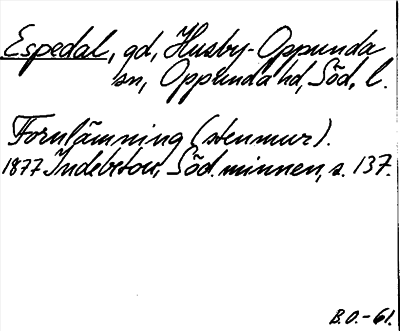 Espedal, gd, Husby-Oppunda
sn, Oppunda hd, Söd. l.
Fornlämning (stenmur).
1877 Indebetou, Söd. minnen, s. 137.
B.O.-61.